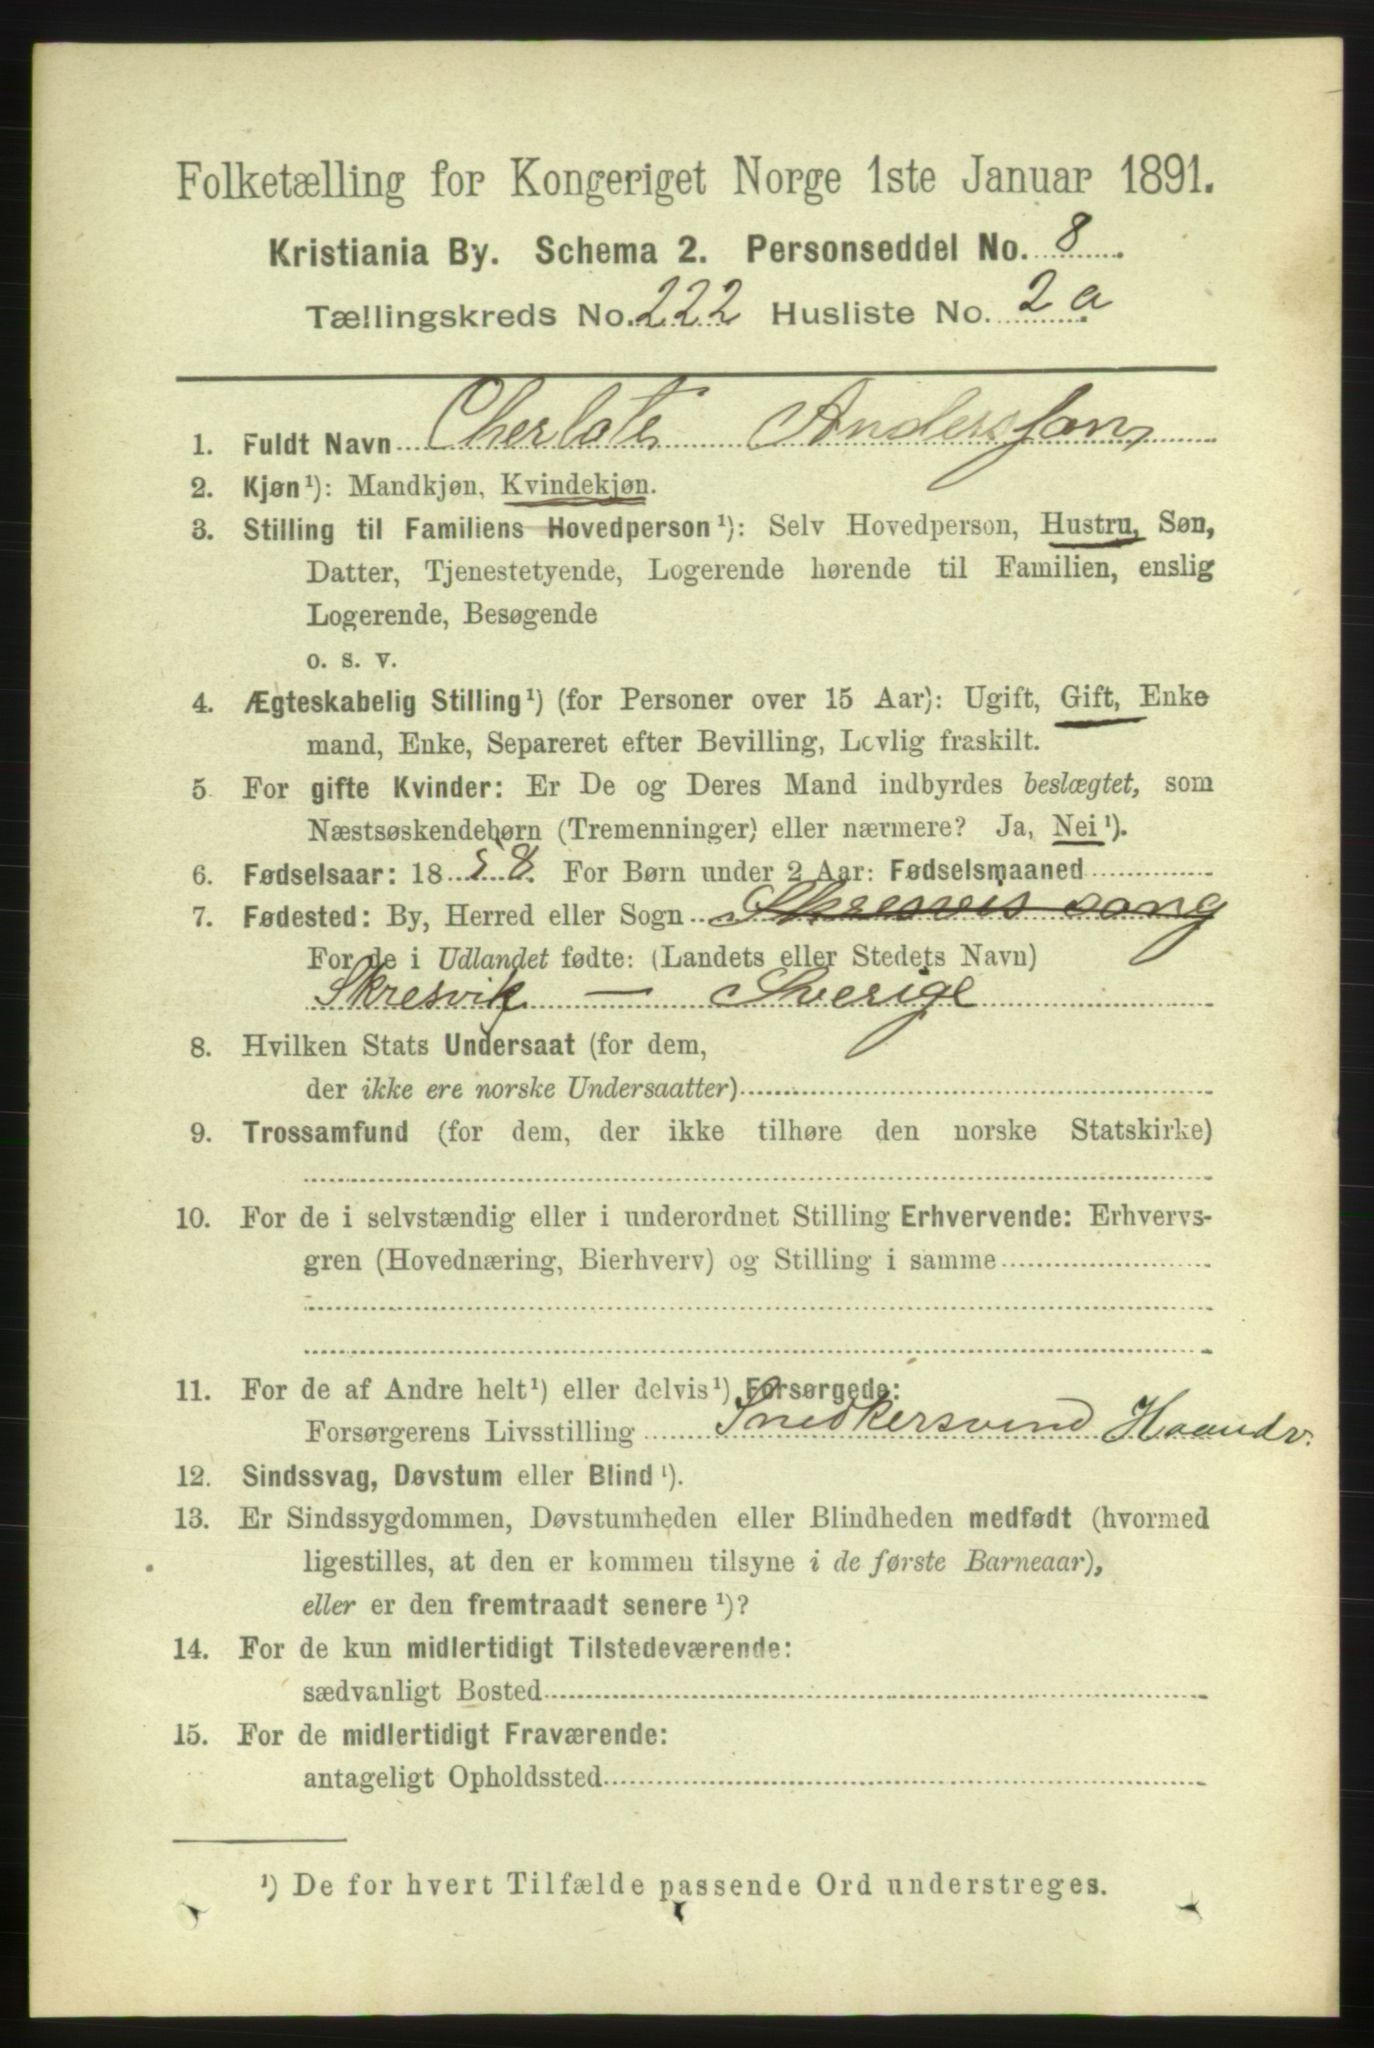 Folketælling for Kongeriget Norge 1ste Januar 1891.
Kristiania By. Schema 2. Personseddel No. 8
Tællingskreds No. 222 Husliste No. 2 a
1. Fuldt Navn Cherlote Andersson
2. Kjøn¹): Mandkjøn, Kvindekjøn.
3. Stilling til Familiens Hovedperson¹): Selv Hovedperson, Hustru, Søn,
Datter, Tjenestetyende, Logerende hørende til Familien, enslig
Logerende, Besøgende
o. s. v.
4. Ægteskabelig Stilling¹) (for Personer over 15 Aar): Ugift, Gift, Enke
mand, Enke, Separeret efter Bevilling, Lovlig fraskilt.
5 For gifte Kvinder: Er De og Deres Mand indbyrdes beslægtet, som
Næstsøskendebørn (Tremenninger) eller nærmere? Ja, Nei¹).
6. Fødselsaar: 18 58. For Børn under 2 Aar: Fødselsmaaned
7. Fødested: By, Herred eller Sogn
For de i Udlandet fødte: (Landets eller Stedets Navn)
Skresvik — Sverige
8. Hvilken Stats Undersaat (for dem,
der ikke ere norske Undersaatter)
9. Trossamfund (for dem, der ikke tilhøre den norske Statskirke)
10. For de i selvstændig eller i underordnet Stilling Erhvervende: Erhvervs-
gren (Hovednæring, Bierhverv) og Stilling i samme
11. For de af Andre helt¹) eller delvis¹) Forsørgede:
Forsørgerens Livsstilling Snedkersvend Haandv.
12. Sindssvag, Døvstum eller Blind¹).
13. Er Sindssygdommen, Døvstumheden eller Blindheden medfødt (hvormed
ligestilles, at den er kommen tilsyne i de første Barneaar),
eller er den fremtraadt senere¹)?
14. For de kun midlertidigt Tilstedeværende:
sædvanligt Bosted
15. For de midlertidigt Fraværende:
antageligt Opholdssted
¹) De for hvert Tilfælde passende Ord understreges.